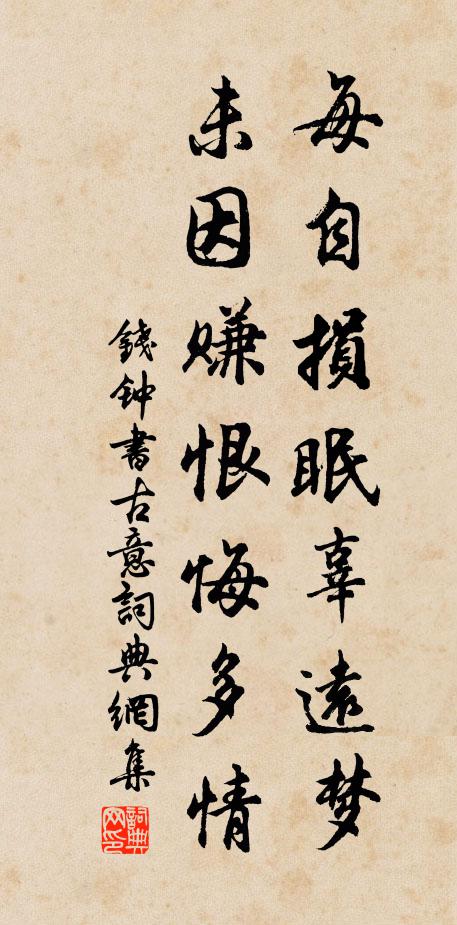 每自損眠辜遠梦
未因赚恨悔多情
錢钟書古意詞典網集
詞典网印